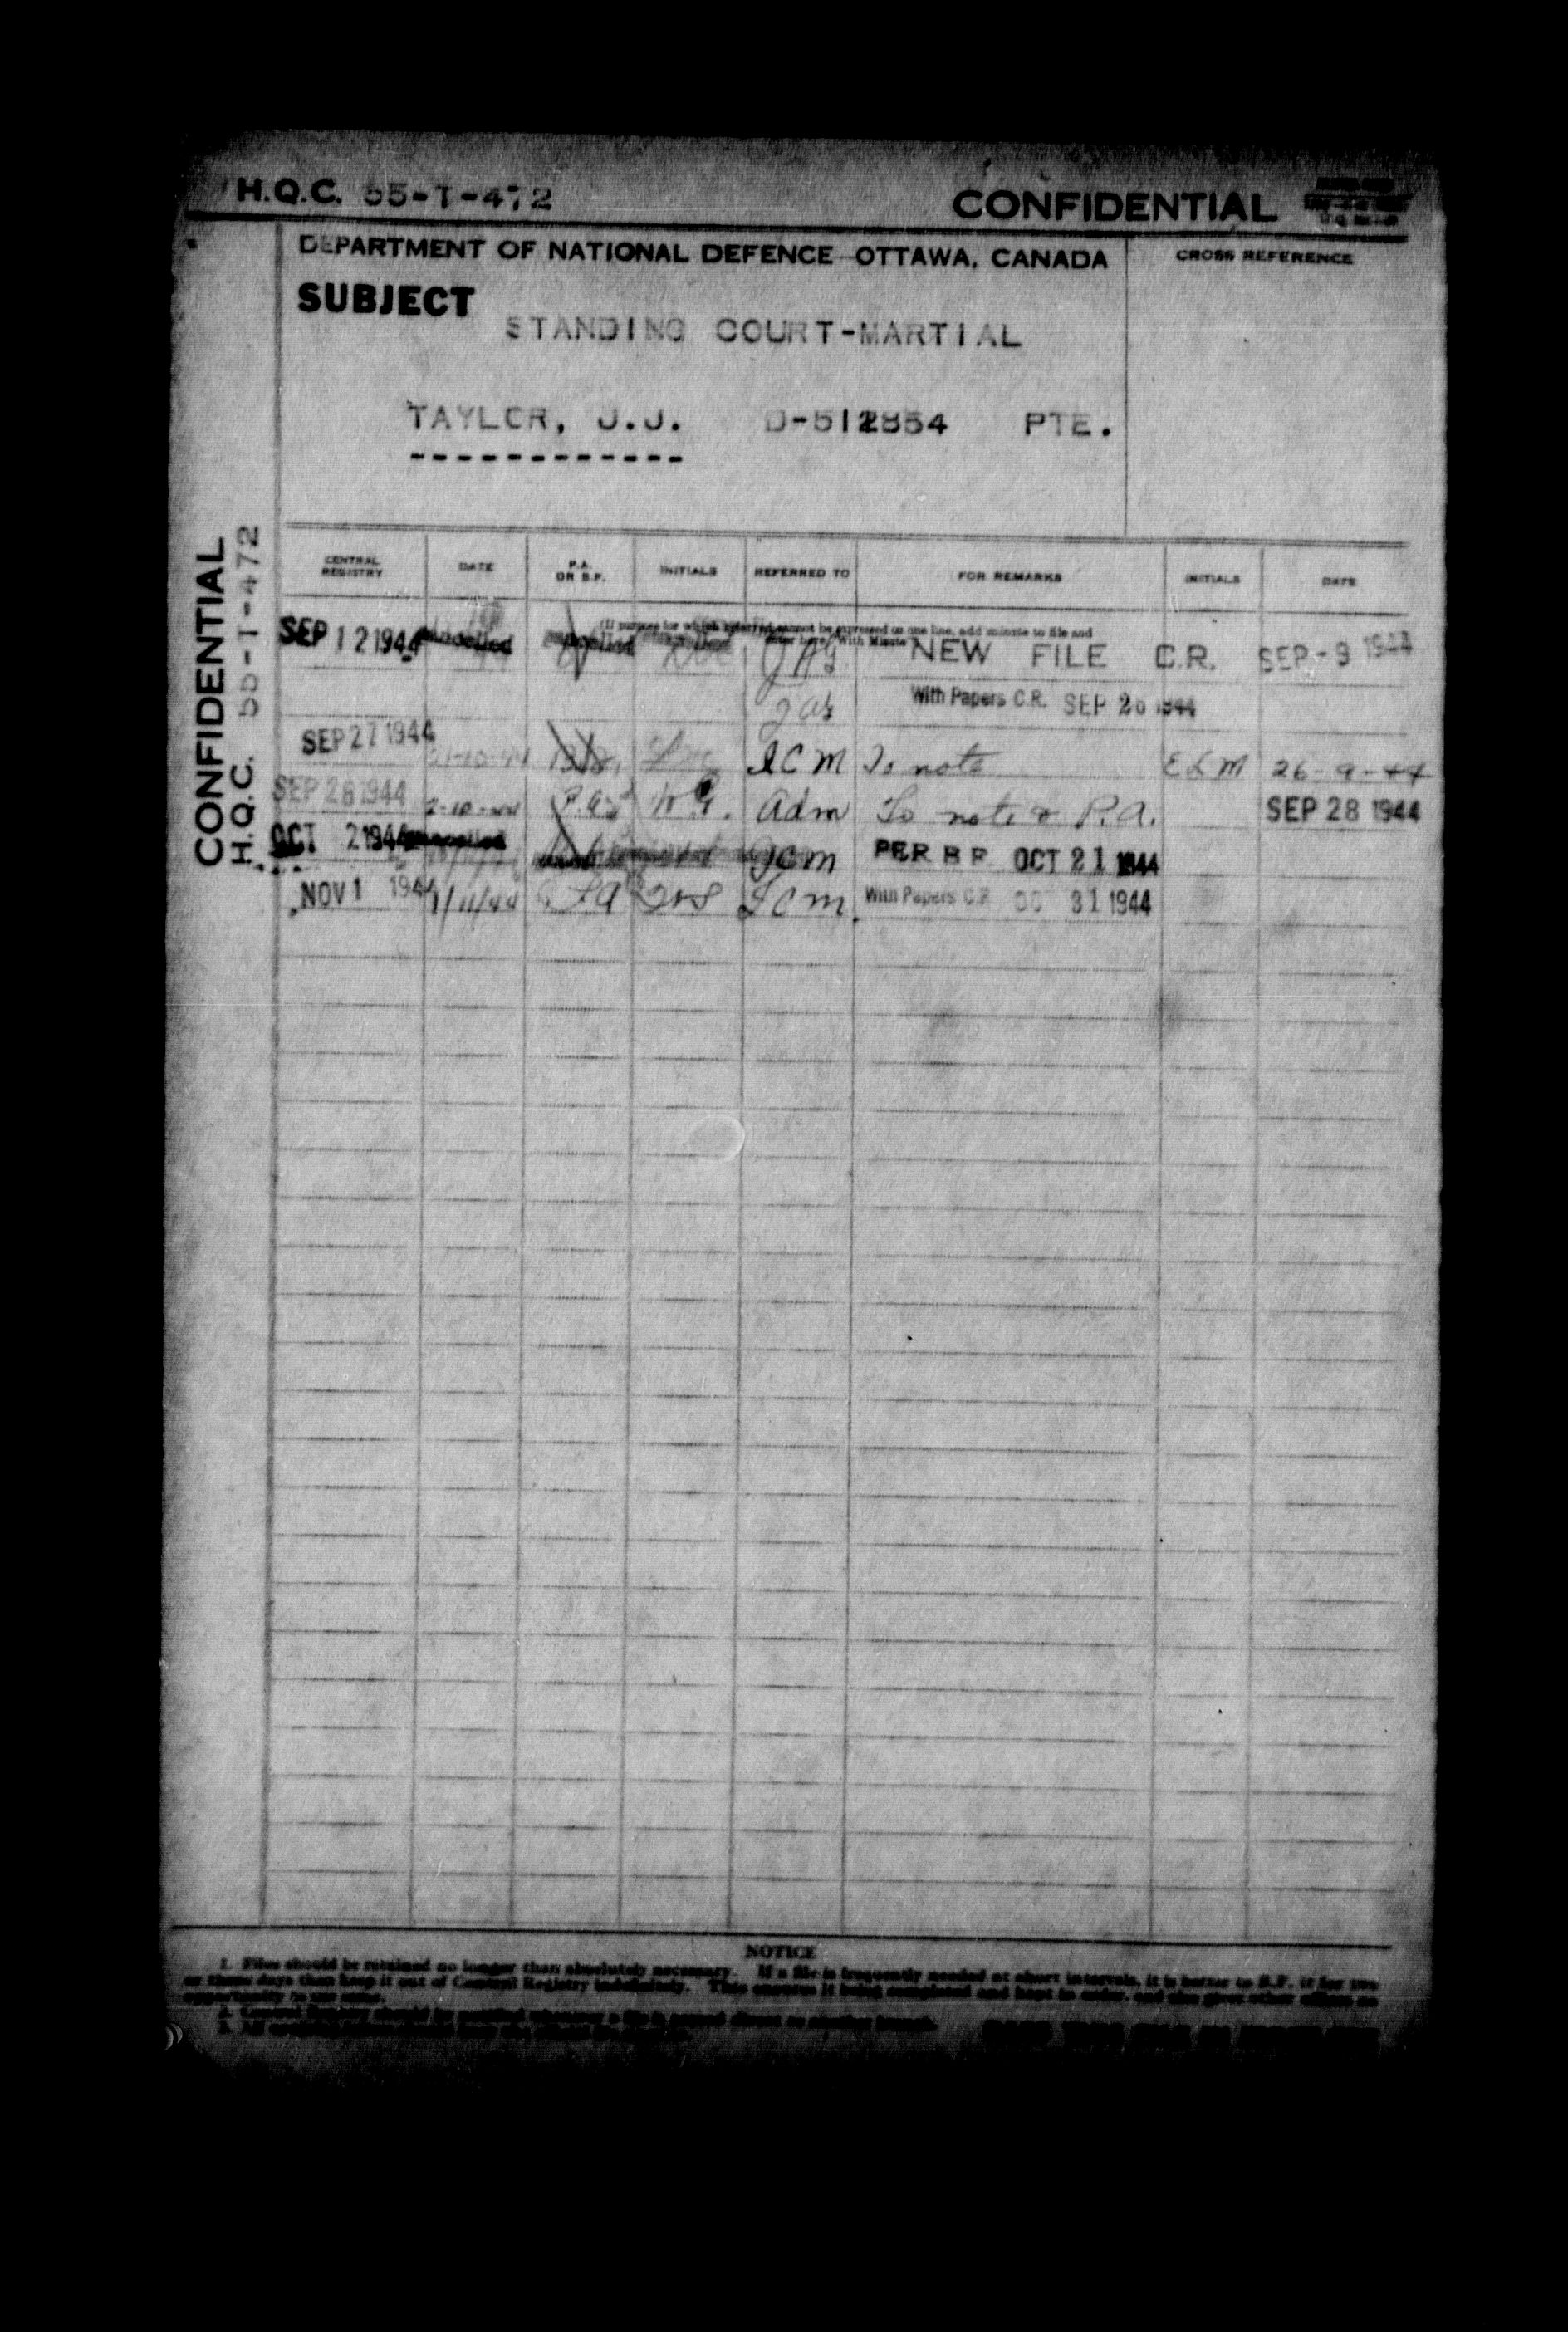 H.Q.C. 55-T-472
CONFIDENTIAL
DEPARTMENT OF NATIONAL DEFENCE OTTAWA, CANADA
CROSS REFERENCE
SUBJECT
STANDING COURT-MARTIAL
TAYLOR, J.J. D-512854 PTE.
CONFIDENTIAL
H.Q.C. 55-T-472
CENTRAL REGISTRY DATE P.A. OR B.F. INITIALS REFERRED TO FOR REMARKS INITIALS DATE
(If purpose for which referred cannot be expressed on one line, add minute to file and
enter here "With Minute")
SEP 12 1944 Cancelled JAG NEW FILE C.R. SEP -9 1944
JAG With Papers C.R. SEP 26 1944
SEP 27 1944 ICM To note ELM 26-9-44
SEP 28 1944 2-10-44 P.A. Adm To note & P.A. SEP 28 1944
OCT 2 1944 Cancelled JCM PER B F OCT 21 1944
NOV 1 1944 1/11/44 P.A JCM With Papers C.R. OCT 31 1944
NOTICE
1. Files should be retained no longer than absolutely necessary. If a file is frequently needed at short intervals, it is better to B.F. it for two
or three days than keep it out of Central Registry indefinitely. This ensures it being completed and kept in order, and also gives other offices an
opportunity to use same.
2. Central Registry should be notified whenever a file is passed direct to another branch.